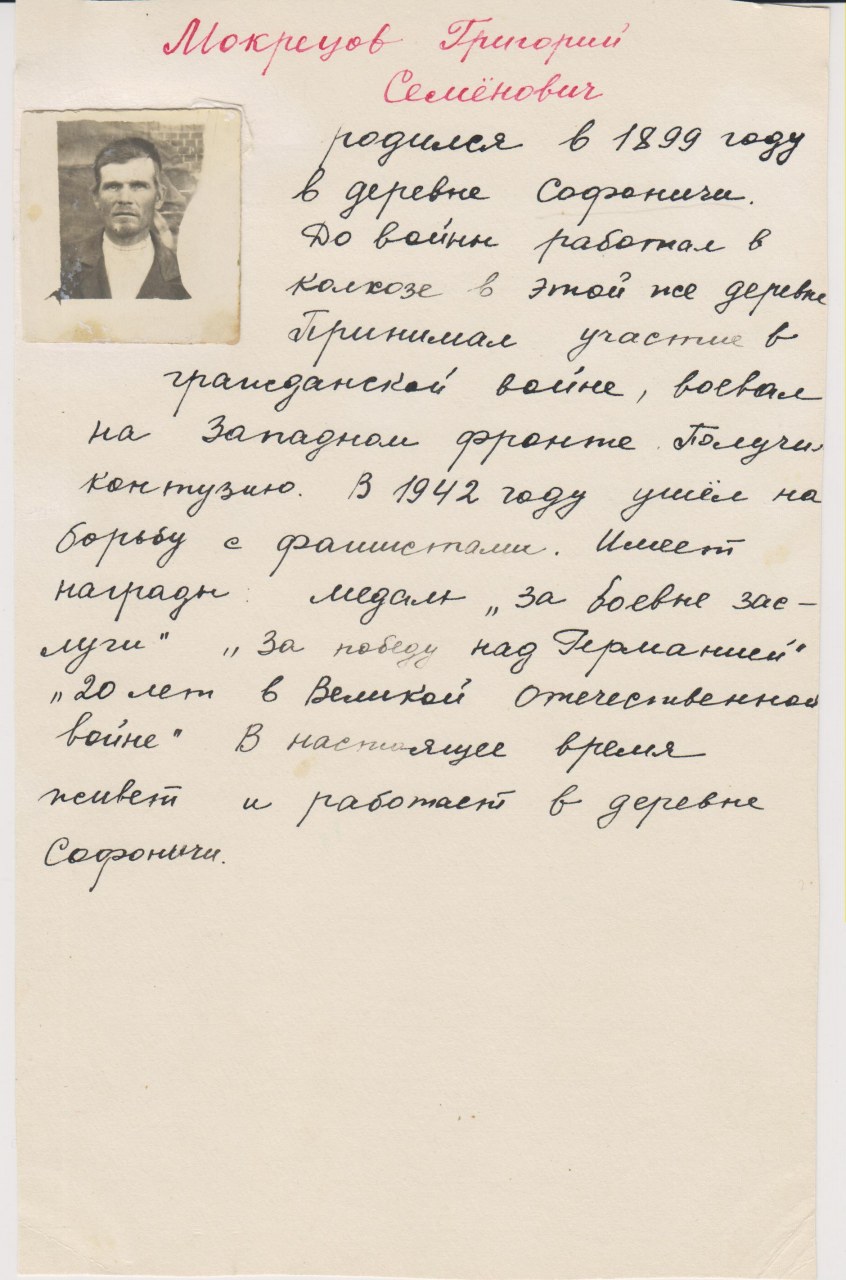 Мокрецов Григорий
Семёнович
родился в 1899 году
в деревне Софоничи.
До войны работал в
колхозе в этой же деревне
Принимал участие в
гражданской войне, воевал
на Западном фронте. Получил
контузию. В 1942 году ушёл на
борьбу с фашистами. Имеет
награды: медаль „За боевые зас-
луги" „За победу над Германией"
„20 лет в Великой Отечественной
войне" В настоящее время
живет и работает в деревне
Софоничи.